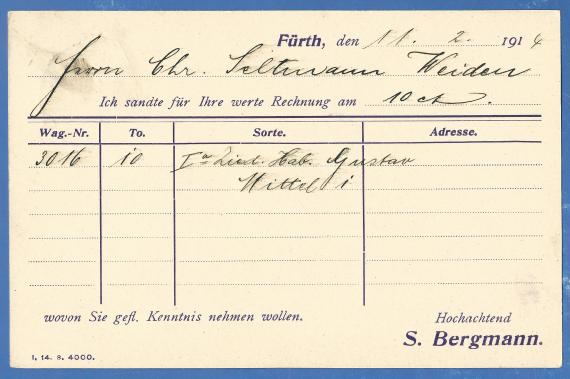 Fürth, den 11. 2. 1914
Herrn Chr. Seltmann Weiden
Ich sandte für Ihre werte Rechnung am 10 ct.
Wag.-Nr. To. Sorte. Adresse.
3016 10 Ia Hab. Gustav
Mittel i
wovon Sie gefl. Kenntnis nehmen wollen.
Hochachtend
S. Bergmann.
I. 14. S. 4000.